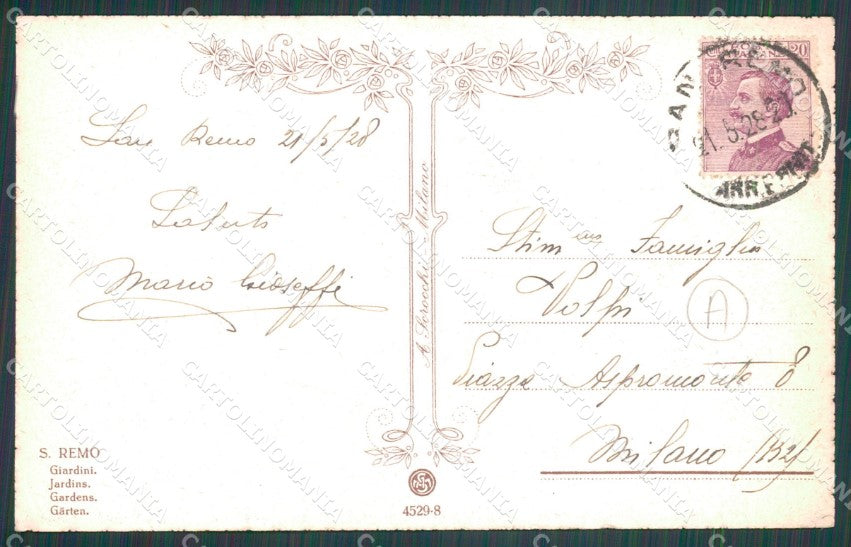 San Remo 21/5/28
Saluti
Mario Gioseffi
S. REMO
Giardini.
Jardins.
Gardens.
Gärten.
A. Scrocchi - Milano
4529-8
20
SAN REMO
21.5.28.
ARR. E PART.
Stim ma Famiglia
Volpi
A
Piazza Aspromonte 8
Milano (132)
CARTOLINOMANIA